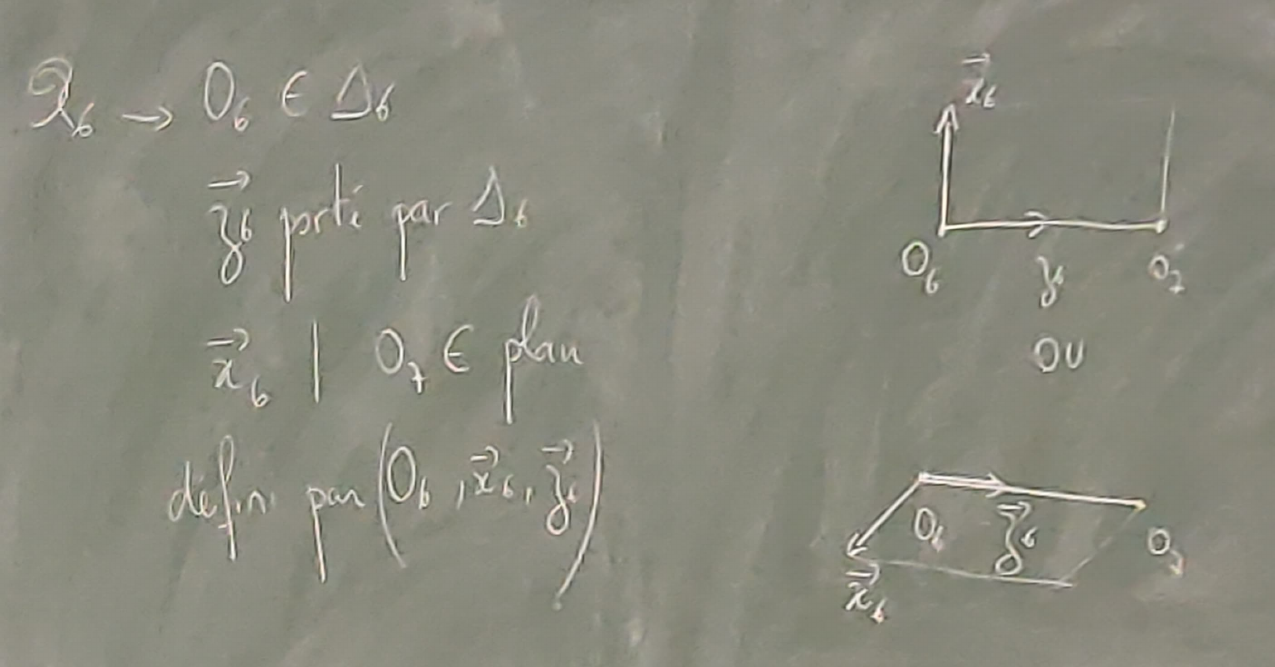 R₆ → O₆ ∈ Δ₆
z⃗₆ porté par Δ₆
x⃗₆ | O₇ ∈ plan
défini par (O₆, x⃗₆, z⃗₆)
x⃗₆
O₆ z₆ O₇
OU
O₆ z⃗₆ O₇
x⃗₆